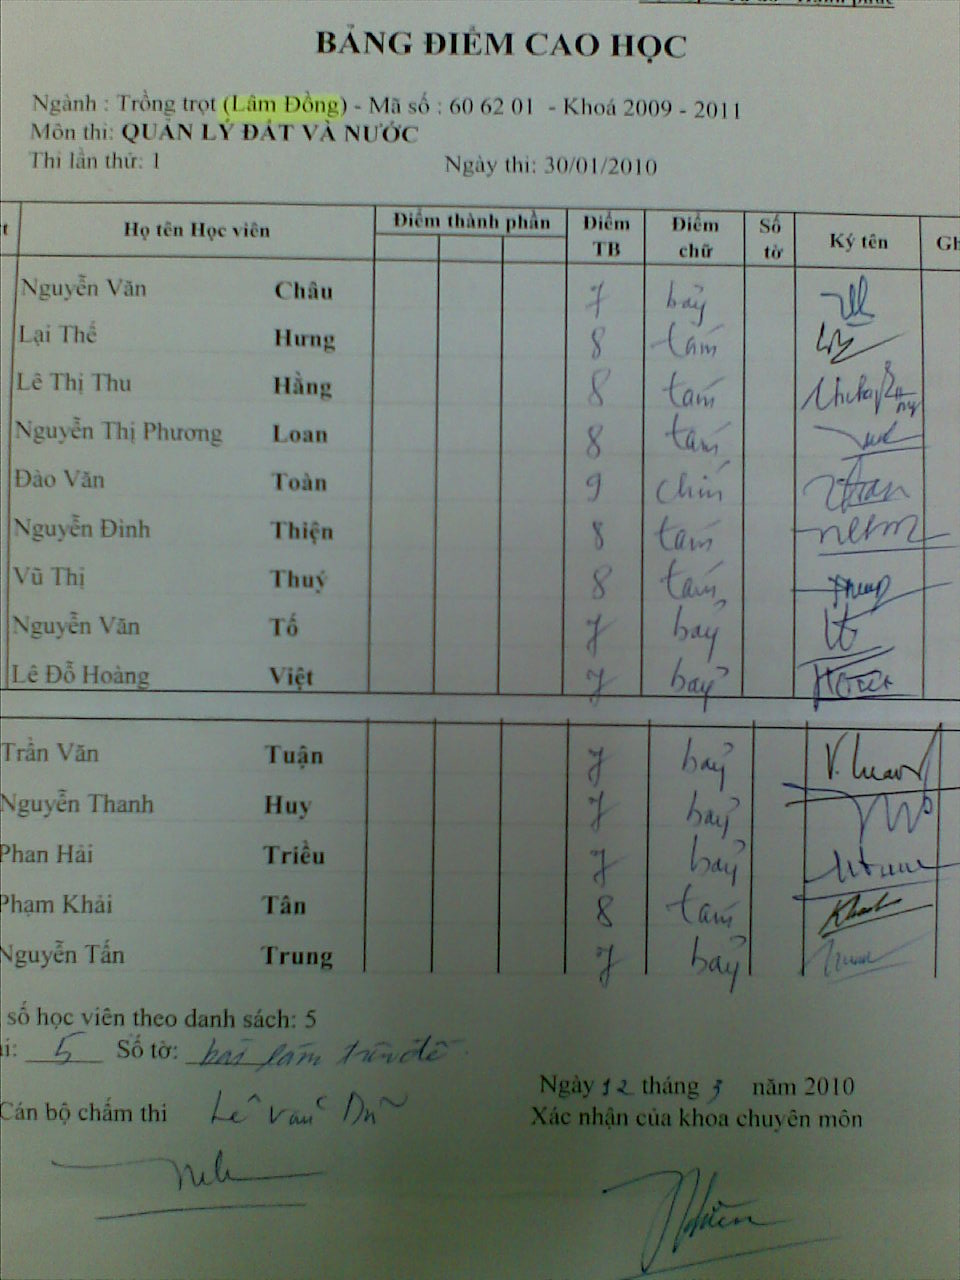 BẢNG ĐIỂM CAO HỌC
Ngành : Trồng trọt (Lâm Đồng) - Mã số : 60 62 01 - Khoá 2009 - 2011
Môn thi: QUẢN LÝ ĐẤT VÀ NƯỚC
Thi lần thứ: 1 Ngày thi: 30/01/2010
Họ tên Học viên Điểm thành phần Điểm TB Điểm chữ Số tờ Ký tên
Nguyễn Văn Châu 7 bảy
Lại Thế Hưng 8 tám
Lê Thị Thu Hằng 8 tám
Nguyễn Thị Phương Loan 8 tám
Đào Văn Toàn 9 chín
Nguyễn Đình Thiện 8 tám
Vũ Thị Thuý 8 tám
Nguyễn Văn Tố 7 bảy
Lê Đỗ Hoàng Việt 7 bảy
Trần Văn Tuận 7 bảy
Nguyễn Thanh Huy 7 bảy
Phan Hải Triều 7 bảy
Phạm Khải Tân 8 tám
Nguyễn Tấn Trung 7 bảy
số học viên theo danh sách: 5
5 Số tờ: bài làm trên đề
Ngày 12 tháng 3 năm 2010
Cán bộ chấm thi Lê Văn Dũ
Xác nhận của khoa chuyên môn